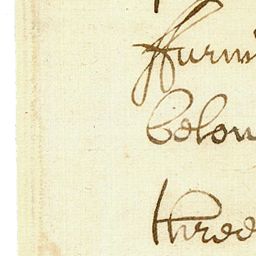 ffurni
belon
three